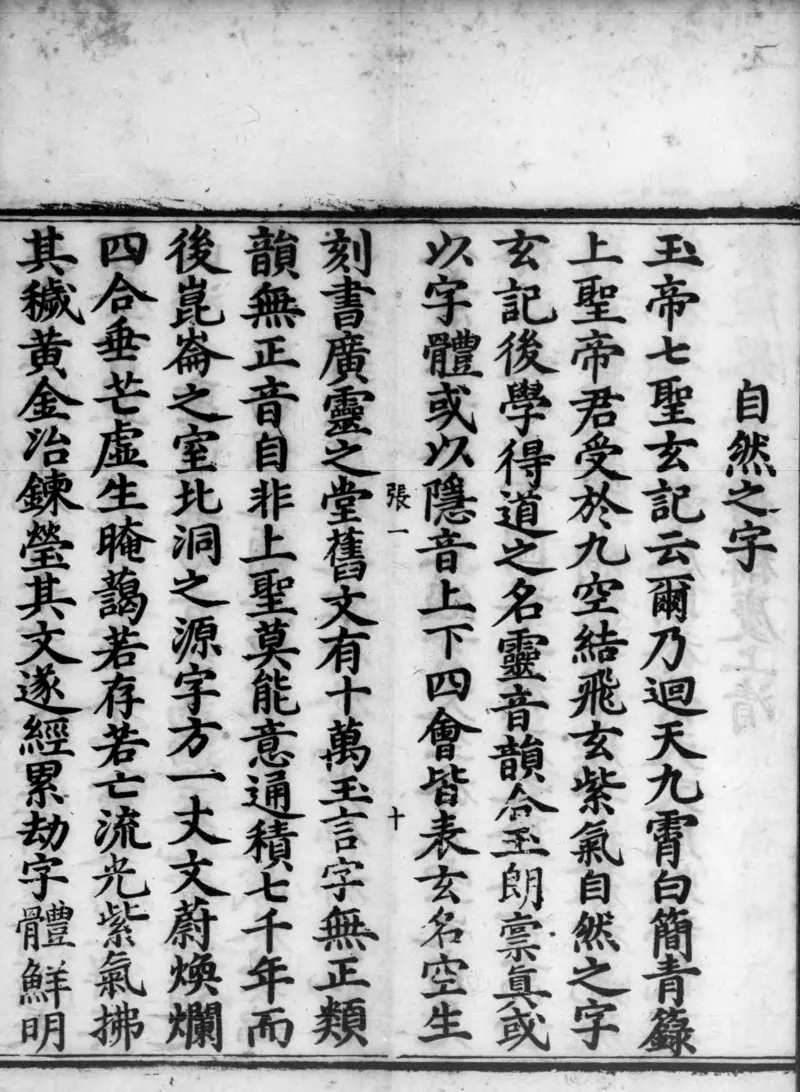 自然之字
玉帝七聖玄記云爾乃迴天九霄白簡青籙
上聖帝君受於九空結飛玄紫氣自然之字
玄記後學得道之名靈音韻合玉朗稟真或
以字體或以隱音上下四會皆表玄名空生
張一
十
刻書廣靈之堂舊文有十萬玉言字無正類
韻無正音自非上聖莫能意通積七千年而
後崑崙之室北洞之源字方一丈文蔚煥爛
四合垂芒虛生晻藹若存若亡流光紫氣拂
其穢黃金冶鍊瑩其文遂經累劫字體鮮明